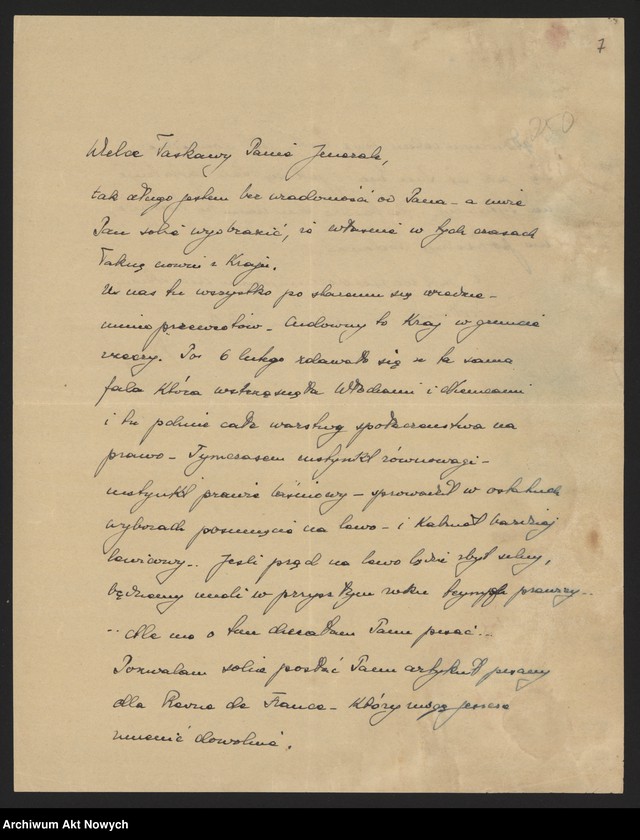 7
250
Wielce Łaskawy Panie Jenerale,
tak długo jestem bez wiadomości od Pana – a umie
Pan sobie wyobrazić, iż właśnie w tych czasach
łaknę nowin z Kraju.
U nas tu wszystko po staremu się wiedzie –
mimo przewrotów – Cudowny to Kraj w gruncie
rzeczy. Po 6 lutego zdawało się że ta sama
fala która wstrząsnęła Włochami i Niemcami
i tu pchnie całe warstwy społeczeństwa na
prawo – Tymczasem instynkt równowagi –
instynkt prawie baśniowy – sprowadził w ostatnich
wyborach posunięcie na lewo – i Kabinet bardziej
lewicowy.. Jeśli prąd na lewo będzie zbyt silny,
będziemy mieli w przyszłym roku prawicy..
.. Ale nie o tem chciałam Panu pisać...
Pozwalam sobie posłać Panu artykuł pisany
dla Revue de France – który mogę jeszcze
zmienić dowolnie.
Archiwum Akt Nowych